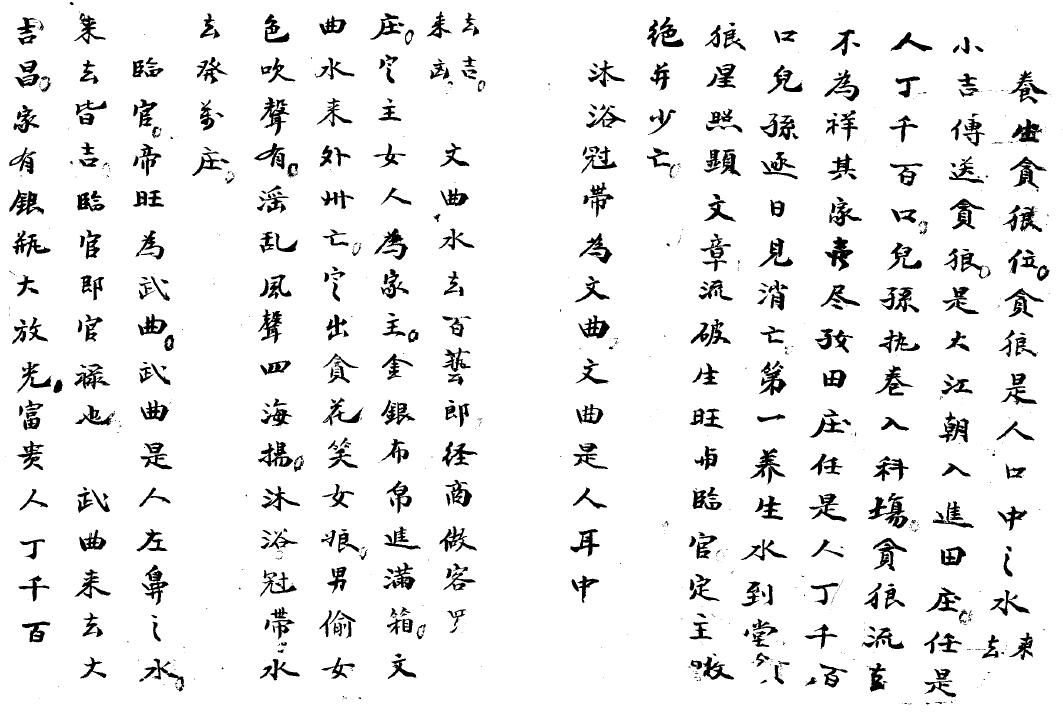 養生貪狼位。貪狼是人口中之水来去
小吉傳送貪狼。是大江朝入進田庄。任是
人丁千百口。兒孫执卷入科場。貪狼流去
不為祥其家賣尽好田庄任是人丁千百
口兒孫逐日見消亡。第一养生水到堂
狼星照顕文章流破生旺与臨官。定主
绝并少亡。
沐浴冠带為文曲。文曲是人耳中
去吉。来凶。 文曲水去百藝郎径商做客
庄。定主女人為家主。金銀布帛進滿箱。文
曲水来外州亡。定出貪花笑女娘。男偷女
色吹聲有。滛乱風聲四海揚。沐浴冠帶水
去發萬庄。
臨官。帝旺為武曲。武曲是人左鼻之水。
来去皆吉。臨官即官禄也。 武曲来去大
吉昌。家有銀瓶大放光。富贵人丁千百